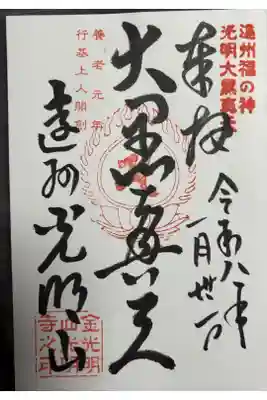 遠州福の神
光明大黒真天
奉拝
令和八年
一月廿一日
大黒真天
養老元年
行基上人開創
遠州光明山
金光明
山光明
寺之印